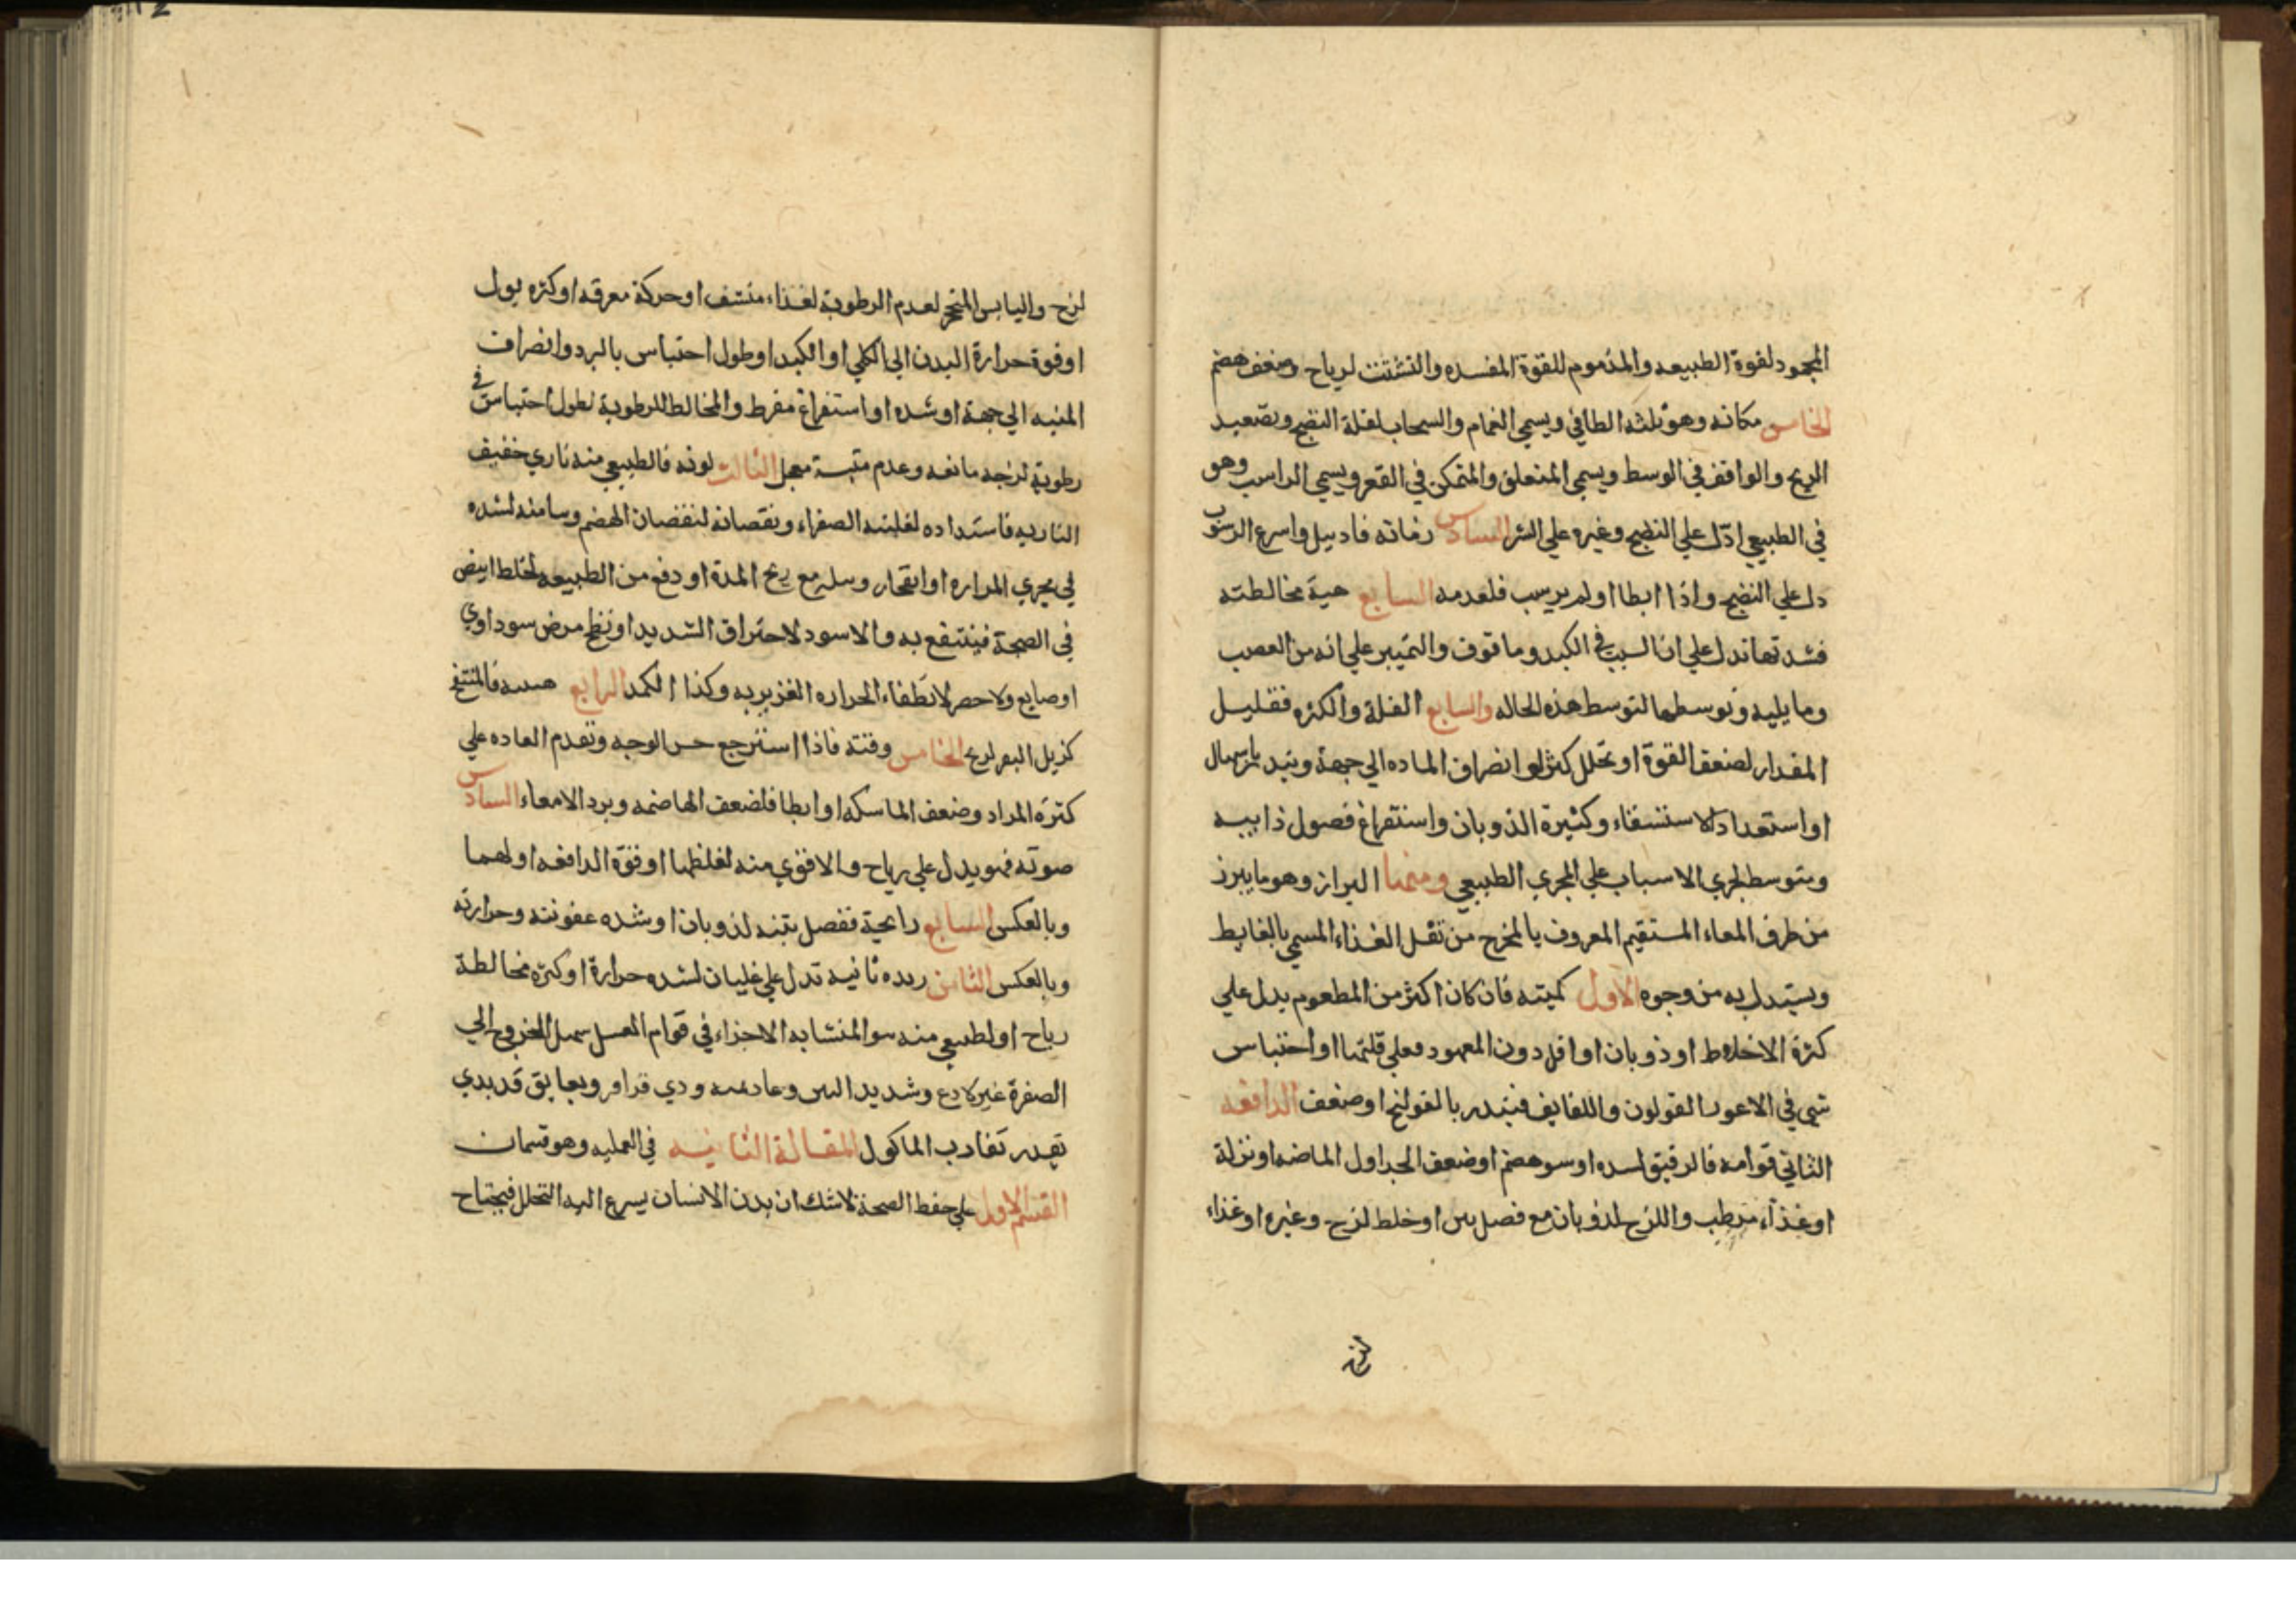 المجهود لقوة الطبيعه والمذموم للقوة المفسده والتشتت لرياح وضعف هضم
الخامس مكانه وهو ثلثه الطافي ويسمي الغمام والسحاب لقلة النضج وتصعيد
الريح والواقف في الوسط ويسمي المتعلق والمتمكن في القعر ويسمي الراسب وهو
في الطبيعي ادّل علي النضج وغيره علي الشر السادس زمانه فادبيل واسرع الرسوب
دل علي النضج واذا ابطا او لم يرسب فلعدمه السابع هية مخالطته
فشدتها تدل علي ان السبب في الكبد وما فوق والتميبر علي انه من العصب
وما يليه وتوسطها لتوسط هذه الحاله والسابع القلة والكثره فقليل
المقدار لضعف القوة او تحلل كثر او انصراف الماده الي جهة وينذر باسهال
او استعداد لاستسقاء وكثيرة الذوبان واستفراغ فصول ذايبه
ومتوسط لجري الاسباب علي المجري الطبيعي ومنها البراز وهو ما يبرز
من طرف المعاء المستقيم المعروف بالمخرج من ثقل الغذاء المسمي بالغايط
ويستدل به من وجوه الاول كميته فان كان اكثر من المطعوم يدل علي
كثرة الاخلاط او ذوبان او اقل دون المعهود فعلي قلتها او احتباس
شي في الاعور القولون واللفايف فينذر بالقولنج او ضعف الدافعه
الثاني قوامه فالرقيق لسده او سو هضم او ضعف الجداول الماضه او نزلة
او غذاء مرطب واللزج لذوبان مع فصل بين او خلط لزج وغيره او غذاء
لزج
لزج واليابس المتحجر لعدم الرطوبة لغذاء منشف او حركة معرقه او كثره بول
او قوة حرارة البدن الي الكلي او الكبد او طول احتباس بالبرد وانصراف
المنيه الي جهة او شده او استفراغ مفرط والمخالط للرطوبة لطول احتباس في
رطوبة لزجه مانعه وعدم متبسة معجل الثالث لونه فالطبيعي منه ناري خفيف
الناريه فاستداده لغلبه الصفراء ونقصانه لنقصان الهضم وسامنه لشده
في مجري المراره او انفجار وسله مع ريح المدة او دفع من الطبيعه لخلط ابيض
في الصحة فينتفع به والاسود لاحتراق الشديد او نضج مرض سوداوي
او صابع ولاحصر لانطفاء الحراره الغزيريه وكذا الكمد الرابع هسه فالمنتفخ
كزبل البقر لريح الخامس وقته فاذا استرجع حس الوجه وتقدم العاده علي
كثره المراد وضعف الماسكه او ابطا فلضعف الهاضمه وبرد الامعاء السادس
صوته فهو يدل علي رياح والاقوي منه لغلظها او قوة الدافعه او لهما
وبالعكس السابع رايحية ففصل بتنه لذوبان او شده عفونته وحرارته
وبالعكس الثامن زبده ثانيه تدل علي غليان لشده حرارة او كثره مخالطة
رياح او لطبيعي منه سو المنشابه الاجزاء في قوام العسل سهل الخروج الي
الصفرة غير لادع وشديد النس وعادمه ودي قراقر وبعابق قد بدي
تقدر تقادب الماكول المقالة الثانيه في العمليه وهو قسمان
القسم الاول علي حفظ الصحة لاشك ان بدن الانسان يسرع اليه التحلل فيحتاح